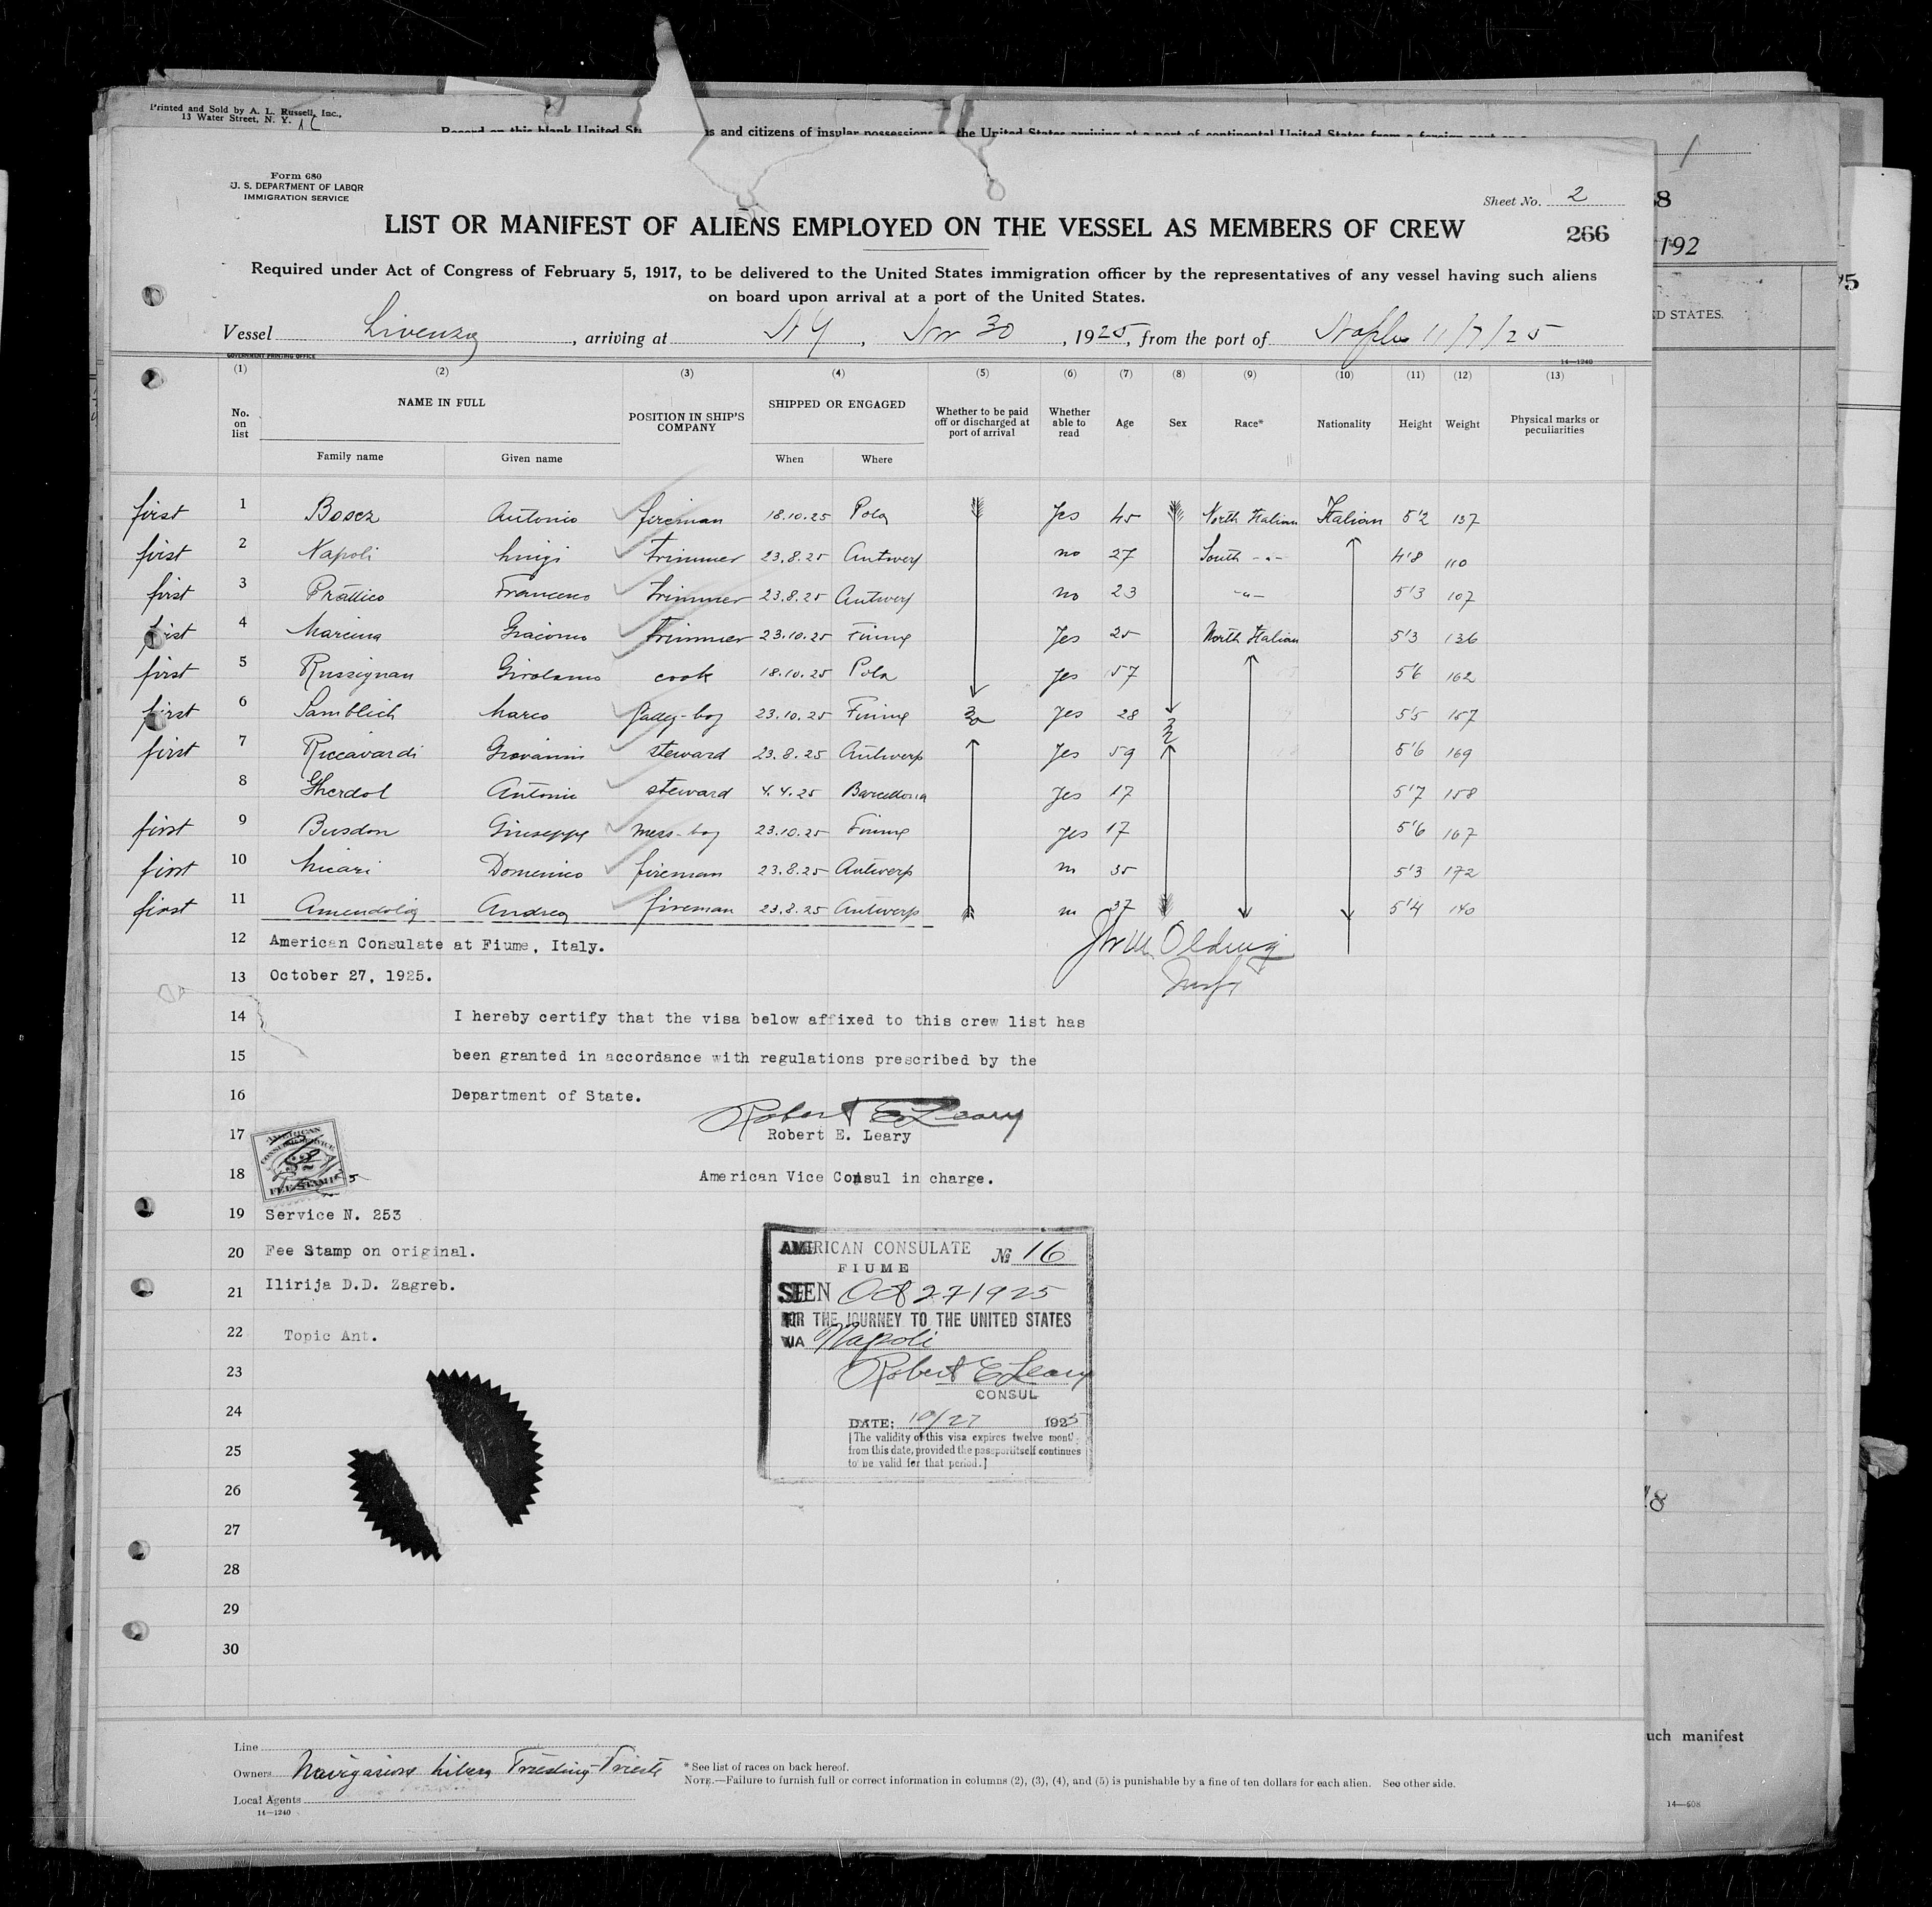 Printed and Sold by A. L. Russell, Inc.,
13 Water Street, N. Y.
and citizens of insular possessions the United States arriving at a port of continental United States from a foreign port
Form 680
U. S. DEPARTMENT OF LABOR
IMMIGRATION SERVICE
Sheet No. 2
LIST OR MANIFEST OF ALIENS EMPLOYED ON THE VESSEL AS MEMBERS OF CREW
266
192
Required under Act of Congress of February 5, 1917, to be delivered to the United States immigration officer by the representatives of any vessel having such aliens
on board upon arrival at a port of the United States.
Vessel Livenza, arriving at N Y, Nov 30, 1925, from the port of Naples 11/7/25
GOVERNMENT PRINTING OFFICE
14—1240
(1) (2) (3) (4) (5) (6) (7) (8) (9) (10) (11) (12) (13)
No. on list
NAME IN FULL
Family name Given name
POSITION IN SHIP'S COMPANY
SHIPPED OR ENGAGED
When Where
Whether to be paid off or discharged at port of arrival
Whether able to read
Age Sex Race* Nationality Height Weight
Physical marks or peculiarities
first 1 Boscz Antonio fireman 18.10.25 Pola Yes 45 North Italian Italian 5'2 137
first 2 Napoli Luigi trimmer 23.8.25 Antwerp no 27 South -"- 4'8 110
first 3 Prattico Francesco trimmer 23.8.25 Antwerp no 23 -"- 5'3 107
first 4 Marcina Giacomo trimmer 23.10.25 Fiume Yes 25 North Italian 5'3 136
first 5 Russignan Girolamo cook 18.10.25 Pola Yes 57 5'6 162
first 6 Samblich Marco galley-boy 23.10.25 Fiume no Yes 28 m 5'5 157
first 7 Riccavardi Giovanni steward 23.8.25 Antwerp Yes 59 5'6 169
8 Gherdol Antonio steward 4.4.25 Barcellona Yes 17 5'7 158
first 9 Busdon Giuseppe mess-boy 23.10.25 Fiume Yes 17 5'6 167
first 10 Licari Domenico fireman 23.8.25 Antwerp no 35 5'3 172
first 11 Amendolia Andrea fireman 23.8.25 Antwerp no 37 5'4 140
12 American Consulate at Fiume, Italy.
13 October 27, 1925.
14 I hereby certify that the visa below affixed to this crew list has
15 been granted in accordance with regulations prescribed by the
16 Department of State.
Robert E Leary
17 Robert E. Leary
AMERICAN
CONSULAR SERVICE
$2
FEE STAMP
18 American Vice Consul in charge.
19 Service N. 253
20 Fee Stamp on original.
21 Ilirija D.D. Zagreb.
22 Topic Ant.
AMERICAN CONSULATE № 16
FIUME
SEEN Oct 27 1925
FOR THE JOURNEY TO THE UNITED STATES
VIA Napoli
Robert E Leary
CONSUL
DATE: 10/27 1925
[The validity of this visa expires twelve months
from this date, provided the passport itself continues
to be valid for that period.]
23
24
25
26
27
28
29
30
Line
Owners Navigazione Libera Triestina-Trieste
Local Agents
14—1240
* See list of races on back hereof.
NOTE.—Failure to furnish full or correct information in columns (2), (3), (4), and (5) is punishable by a fine of ten dollars for each alien. See other side.
ED STATES.
uch manifest
14—608